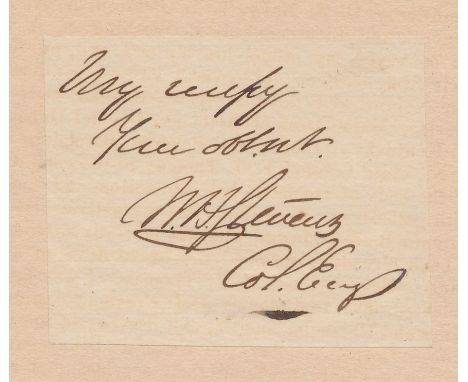 Very respy
Your obt. svt.
W. H. Stevens
Col. Eng